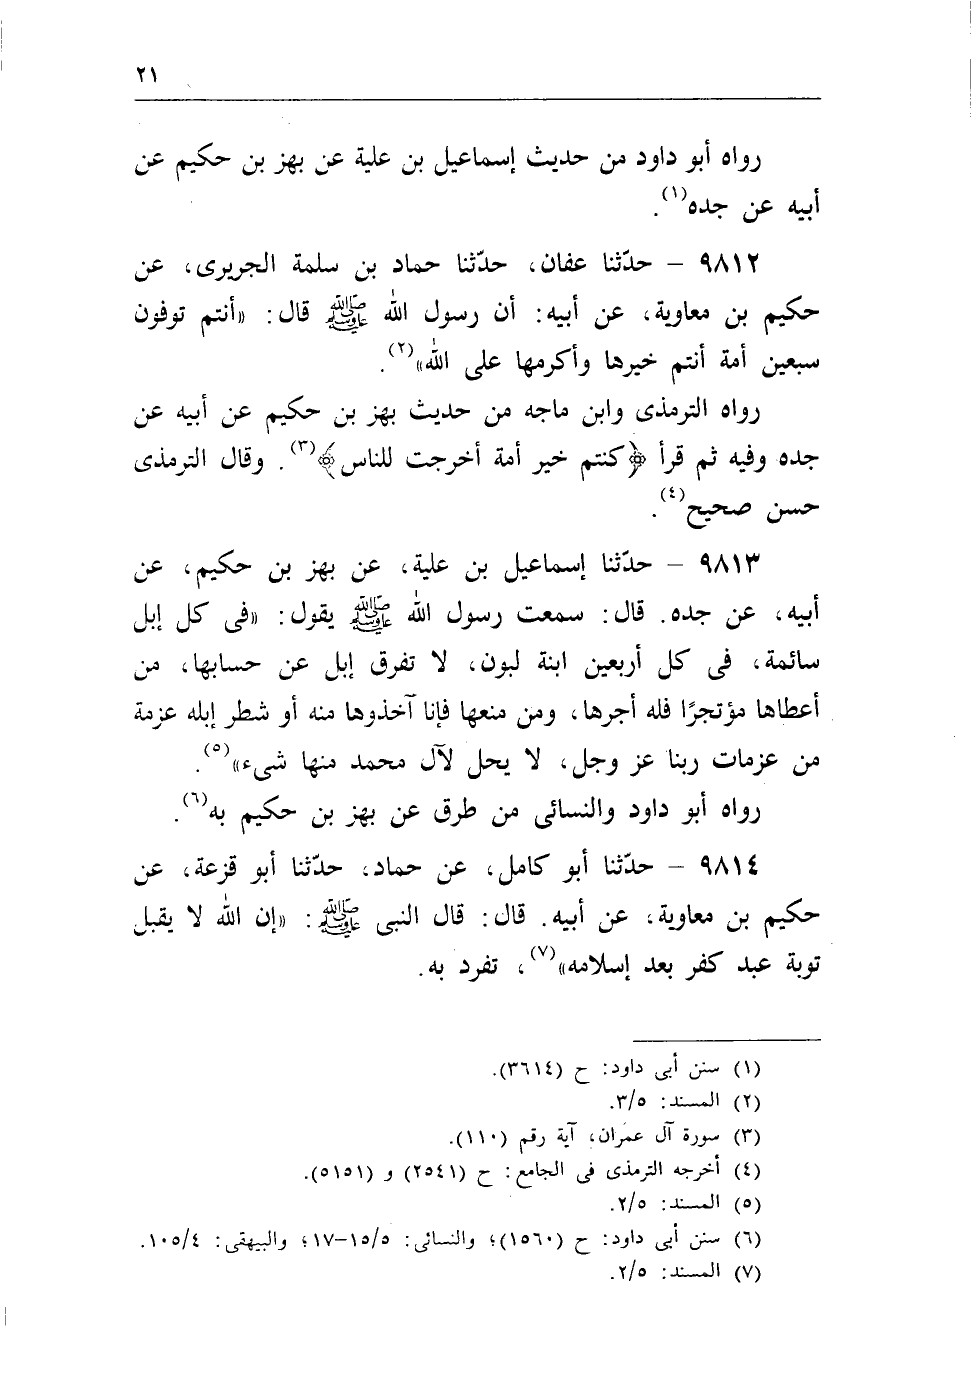 ٢١
رواه أبو داود من حديث إسماعيل بن علية عن بهز بن حكيم عن
أبيه عن جده(١).
٩٨١٢ – حدّثنا عفان، حدّثنا حماد بن سلمة الجريرى، عن
حكيم بن معاوية، عن أبيه: أن رسول الله ﷺ قال: «أنتم توفون
سبعين أمة أنتم خيرها وأكرمها على الله»(٢).
رواه الترمذى وابن ماجه من حديث بهز بن حكيم عن أبيه عن
جده وفيه ثم قرأ ﴿كنتم خير أمة أخرجت للناس﴾(٣). وقال الترمذى
حسن صحيح(٤).
٩٨١٣ – حدّثنا إسماعيل بن علية، عن بهز بن حكيم، عن
أبيه، عن جده. قال: سمعت رسول الله ﷺ يقول: «فى كل إبل
سائمة، فى كل أربعين ابنة لبون، لا تفرق إبل عن حسابها، من
أعطاها مؤتجرًا فله أجرها، ومن منعها فإنا آخذوها منه أو شطر إبله عزمة
من عزمات ربنا عز وجل، لا يحل لآل محمد منها شىء»(٥).
رواه أبو داود والنسائى من طرق عن بهز بن حكيم به(٦).
٩٨١٤ – حدّثنا أبو كامل، عن حماد، حدّثنا أبو قزعة، عن
حكيم بن معاوية، عن أبيه. قال: قال النبى ﷺ: «إن الله لا يقبل
توبة عبد كفر بعد إسلامه»(٧)، تفرد به.
(١) سنن أبى داود: ح (٣٦١٤).
(٢) المسند: ٣/٥.
(٣) سورة آل عمران، آية رقم (١١٠).
(٤) أخرجه الترمذى فى الجامع: ح (٢٥٤١) و (٥١٥١).
(٥) المسند: ٢/٥.
(٦) سنن أبى داود: ح (١٥٦٠)؛ والنسائى: ١٥/٥–١٧؛ والبيهقى: ١٠٥/٤.
(٧) المسند: ٢/٥.